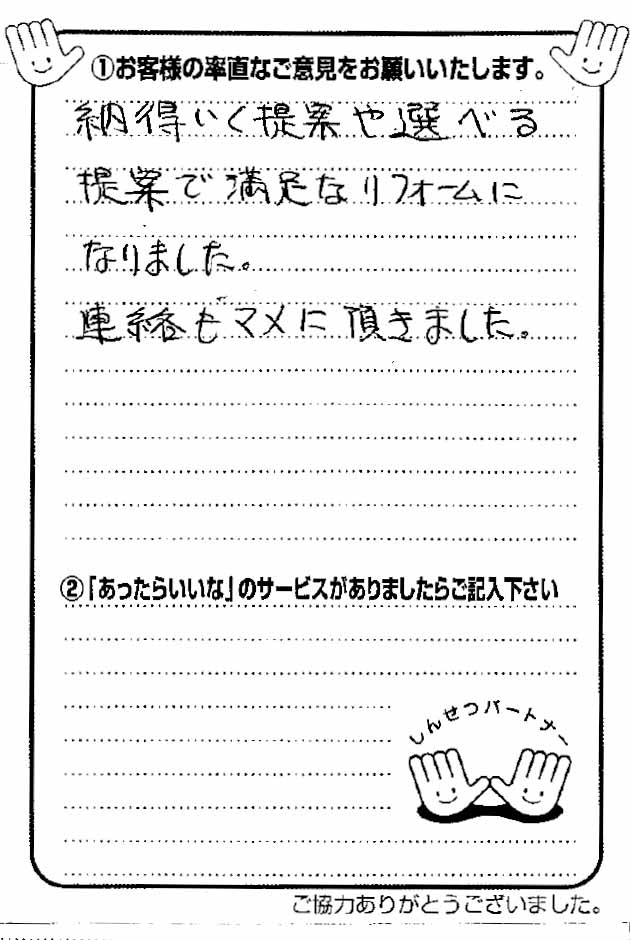 ①お客様の率直なご意見をお願いいたします。
納得いく提案や選べる
提案で満足なリフォームに
なりました。
連絡もマメに頂きました。
②「あったらいいな」のサービスがありましたらご記入下さい
しんせつパートナー
ご協力ありがとうございました。